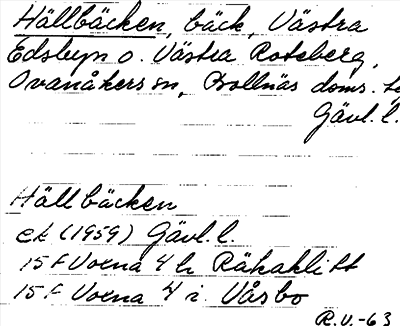 Hällbäcken, bäck, Västra
Edsbyn o. Västra Roteberg,
Ovanåkers sn, Bollnäs doms.
Gävl. l.
Hällbäcken
ek (1959) Gävl. l.
15 F Voxna 4 h Räkaklitt
15 F Voxna 4 i Våsbo
R.V.-63